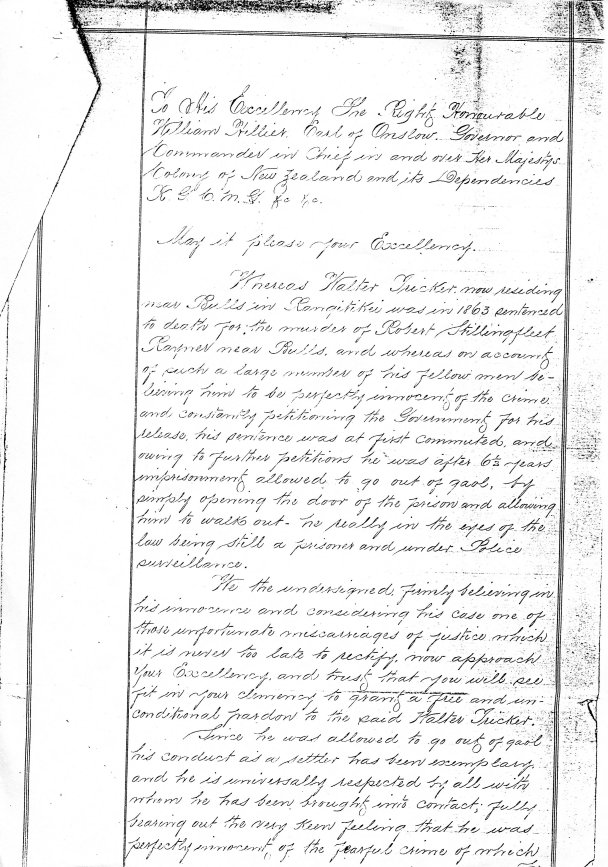 To His Excellency The Right Honourable
William Hillier, Earl of Onslow. Governor and
Commander in Chief in and over Her Majestys
Colony of New Zealand and its Dependencies
K G C M G &c &c.
May it please your Excellency.
Whereas Walter Tricker, now residing
near Bulls in Rangitikei was in 1863 sentenced
to death for, the murder of Robert Stillingfleet
Rayner near Bulls, and whereas on account
of such a large number of his fellow men be-
lieving him to be perfectly innocent of the crime
and constantly petitioning the Government for his
release, his sentence was at first commuted, and
owing to further petitions he was after 6½ years
imprisonment allowed to go out of gaol, by
simply opening the door of the prison and allowing
him to walk out - he really in the eyes of the
law being still a prisoner and under Police
surveillance.
We the undersigned, firmly believing in
his innocence and considering his case one of
those unfortunate miscarriages of justice which
it is never too late to rectify, now approach
Your Excellency, and trust that you will see
fit in your clemency to grant a free and un-
conditional pardon to the said Walter Tricker.
Since he was allowed to go out of gaol
his conduct as a settler has been exemplary
and he is universally respected by all with
whom he has been brought into contact; fully
bearing out the very keen feeling that he was
perfectly innocent, of the fearful crime of which